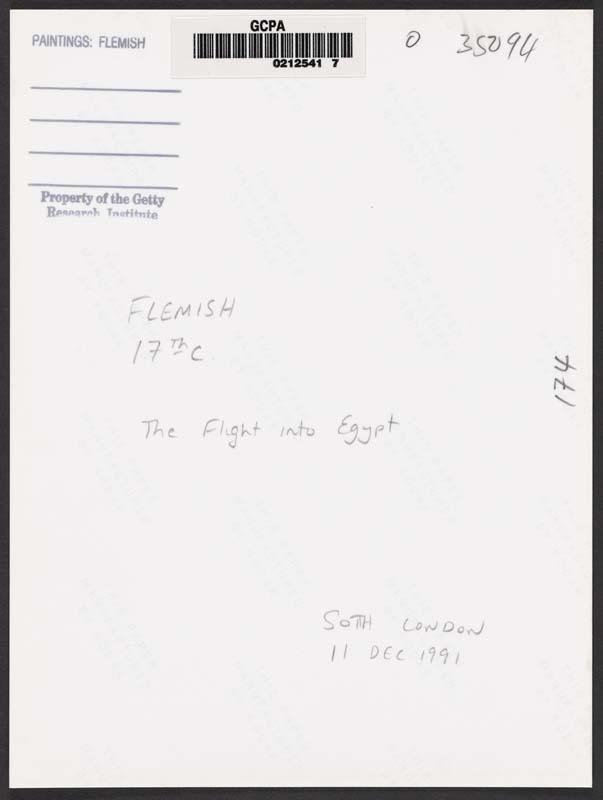 PAINTINGS: FLEMISH
GCPA
0212541 7
0 35094
Property of the Getty
Research Institute
FLEMISH
17th C.
The Flight into Egypt
174
SOTH LONDON
11 DEC 1991